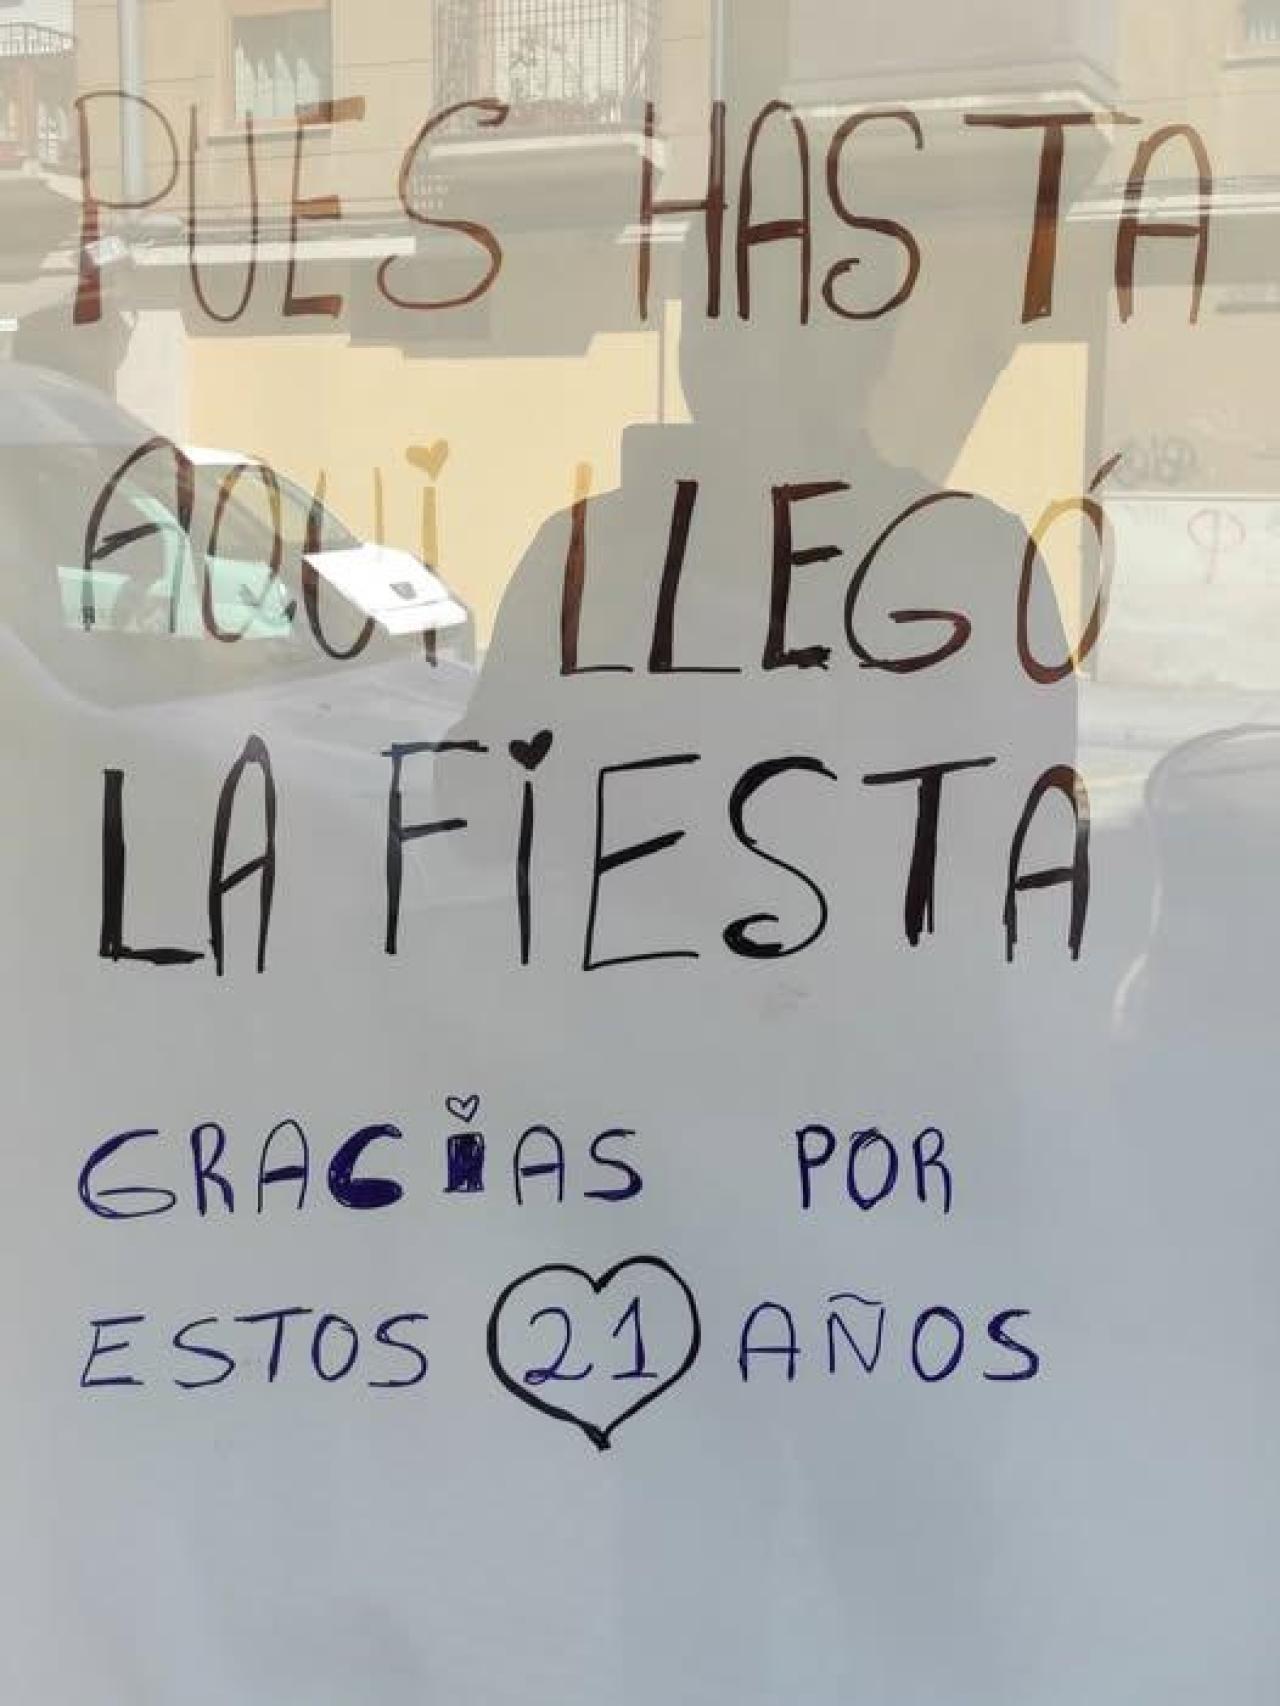 PUES HASTA
AQUÍ LLEGÓ
LA FIESTA
GRACIAS POR
ESTOS 21 AÑOS